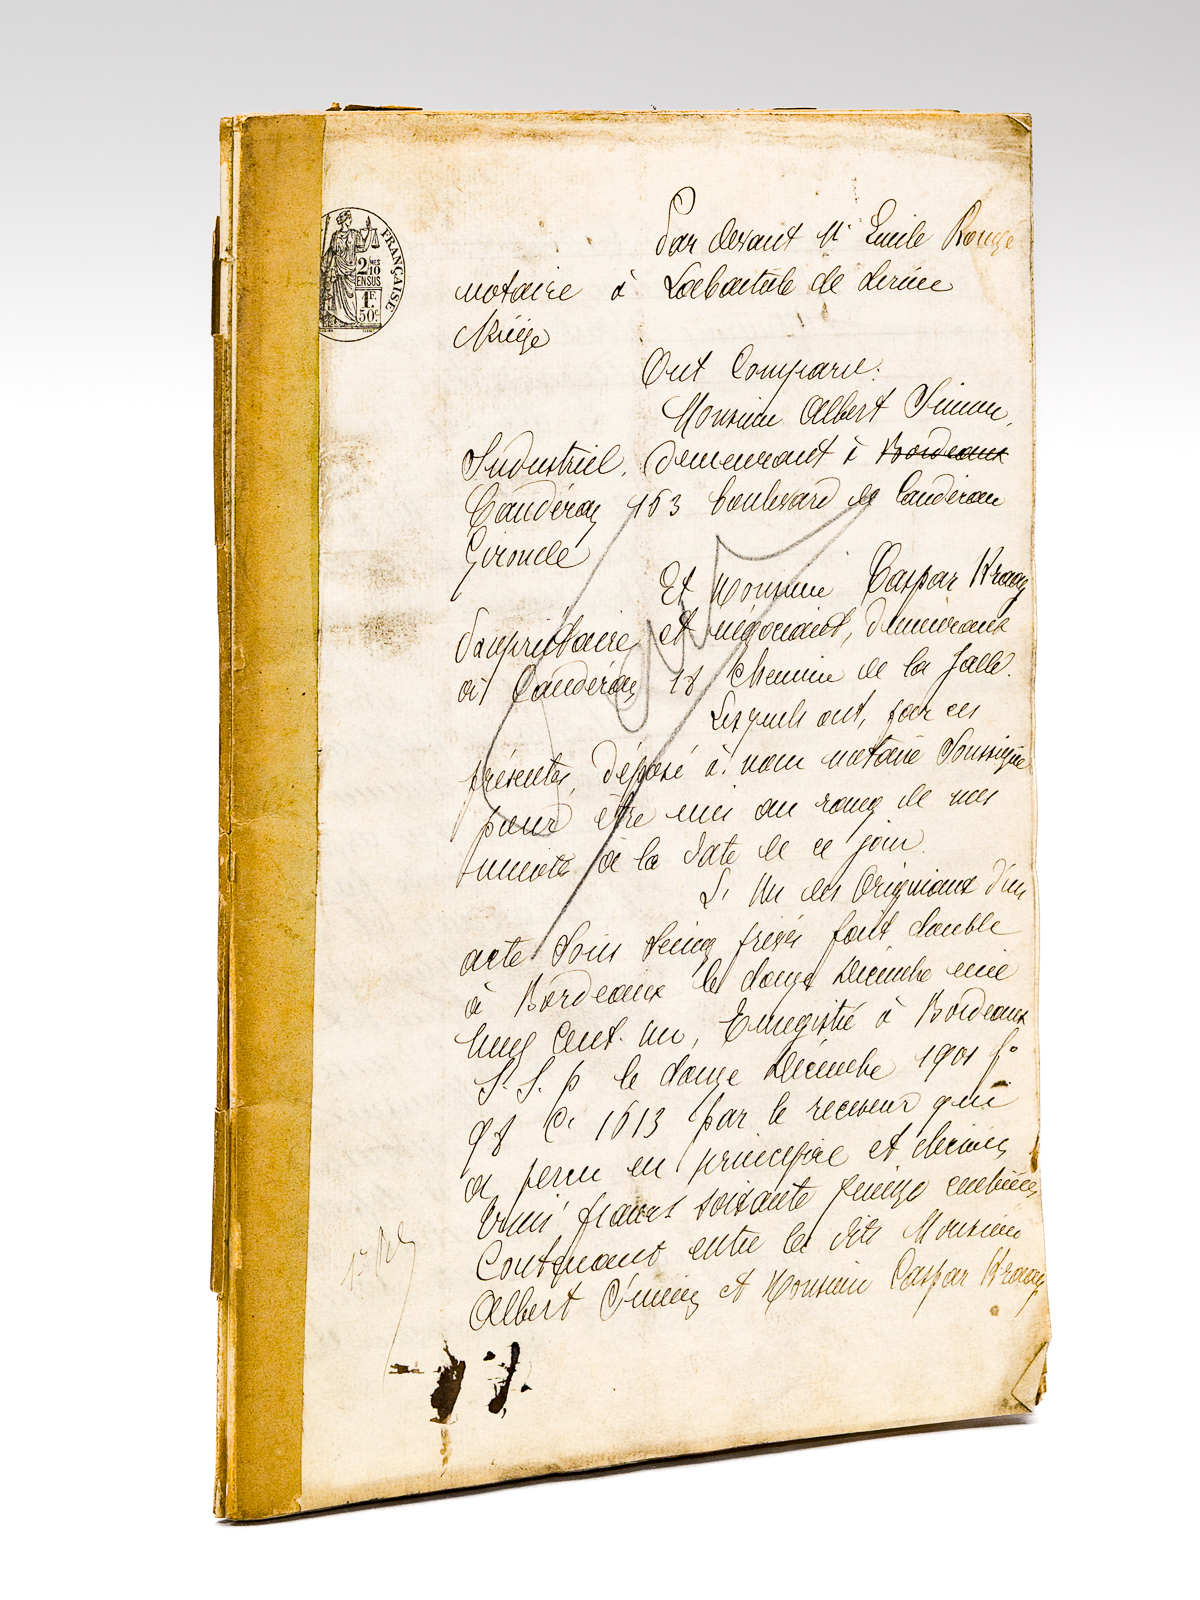 FRANÇAISE
2 MES
10
EN SUS
1F
50c
Par devant Me Emile Rougé
notaire à Labastide de Serou
Ariège
Ont Comparu:
Monsieur Albert Simon,
Industriel, demeurant à Bordeaux
Caudéran 163 boulevard de Caudéran
Gironde
Et Monsieur Caspar Kraaz
propriétaire et négociant, demeurant
à Caudéran 18 chemin de la
Lesquels ont, par ces
présentes, déposé à nous notaire soussigné
pour être mis au rang de mes
minutes à la date de ce jour.
1° Un des Originaux d'un
acte sous seing privés fait double
à Bordeaux le douze Décembre mil
neuf cent un, Enregistré à Bordeaux
S. S. p le douze Décembre 1901 f°
98 Ce 1613 par le receveur qui
a perçu en principal et décimes
francs soixante quinze centimes,
Contenant entre les dits Monsieur
Albert Simon et Monsieur Caspar Kraaz